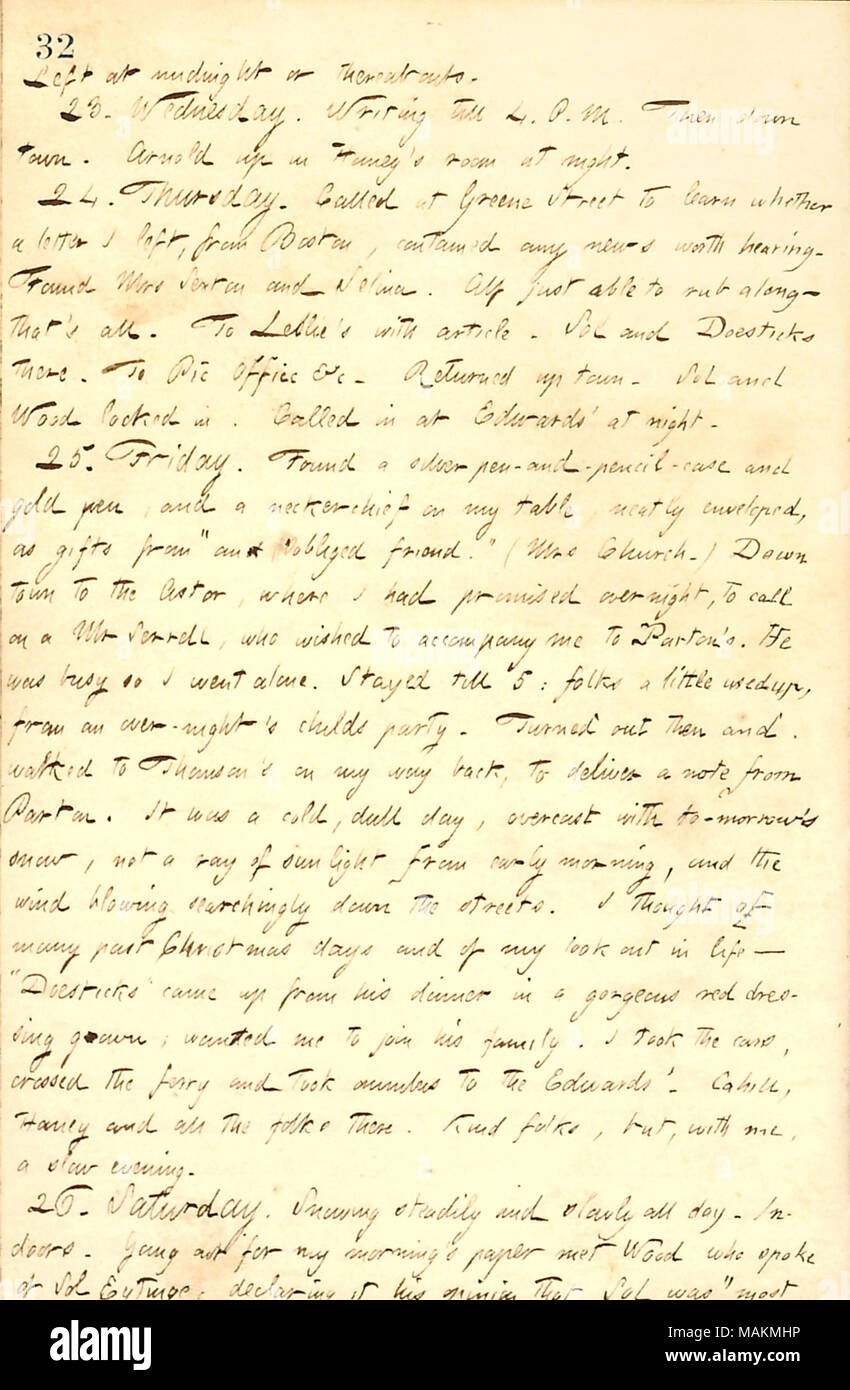 32
Left at midnight or thereabouts.
23. Wednesday. Writing till 4. P.M. Then down
town. Arnold up in Haney's room at night.
24. Thursday. Called at Greene Street to learn whether
a letter I left, from Boston, contained any news worth hearing.
Found Mrs Sexton and Selina. Alf just able to rub along—
that's all. To Leslie's with article. Sol and Doesticks
there. To Pic Office &c. Returned up town. Sol and
Wood looked in. Called in at Edwards' at night.
25. Friday. Found a silver pen-and-pencil-case and
gold pen, and a neckerchief on my table, neatly enveloped,
as gifts from "an obliged friend." (Mrs Church.) Down
town to the Astor, where I had promised overnight, to call
on a Mr Serrell, who wished to accompany me to Parton's. He
was busy so I went alone. Stayed till 5: folks a little used up,
from an over-night's childs party. Turned out then and
walked to Thomson's on my way back, to deliver a note from
Parton. It was a cold, dull day, overcast with to-morrow's
snow, not a ray of sunlight from early morning, and the
wind blowing searchingly down the streets. I thought of
many past Christmas days and of my look out in life—
"Doesticks" came up from his dinner in a gorgeous red dres-
sing gown, wanted me to join his family. I took the cars,
crossed the ferry and took omnibus to the Edwards'. Cahill,
Haney and all the folks there. Kind folks, but, with me,
a slow evening.
26. Saturday. Snowing steadily and slowly all day. In-
doors. Going out for my morning's paper met Wood who spoke
of Sol Eytinge, declaring it his opinion that Sol was "most
alamy
Image ID: MAKMHP
www.alamy.com